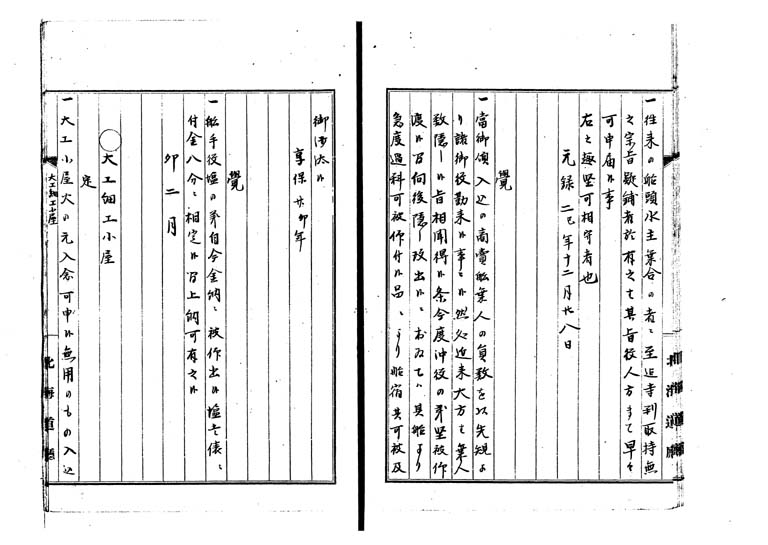 一往来の船頭水主乗合の者ニ至迄寺判取持無
之宗旨疑鋪者於有之ハ其旨役人方まて早々
可申届候事
右之趣堅可相守者也
元禄二巳年十二月廿八日
覺
一當御領入込の商賣船乗人の員数を以先規よ
り諸御役勤来候事ニ候然処近来大方ハ乗人
致隠し候旨相聞得候条今度沖役の者堅被仰
渡候間向後隠し改出候ニおゐてハ其船より
急度過科可被仰付候品ニより船宿共可被及
御沙汰候
享保廿卯年
覺
一船手役塩の者自今金納ニ被仰出候塩壱俵ニ
付金八分ニ相定候間上納可有之候
卯二月
○大工細工小屋
定
一大工小屋火の元入念可申候無用のもの入込
大工細工小屋
北海道廳
北海道廳